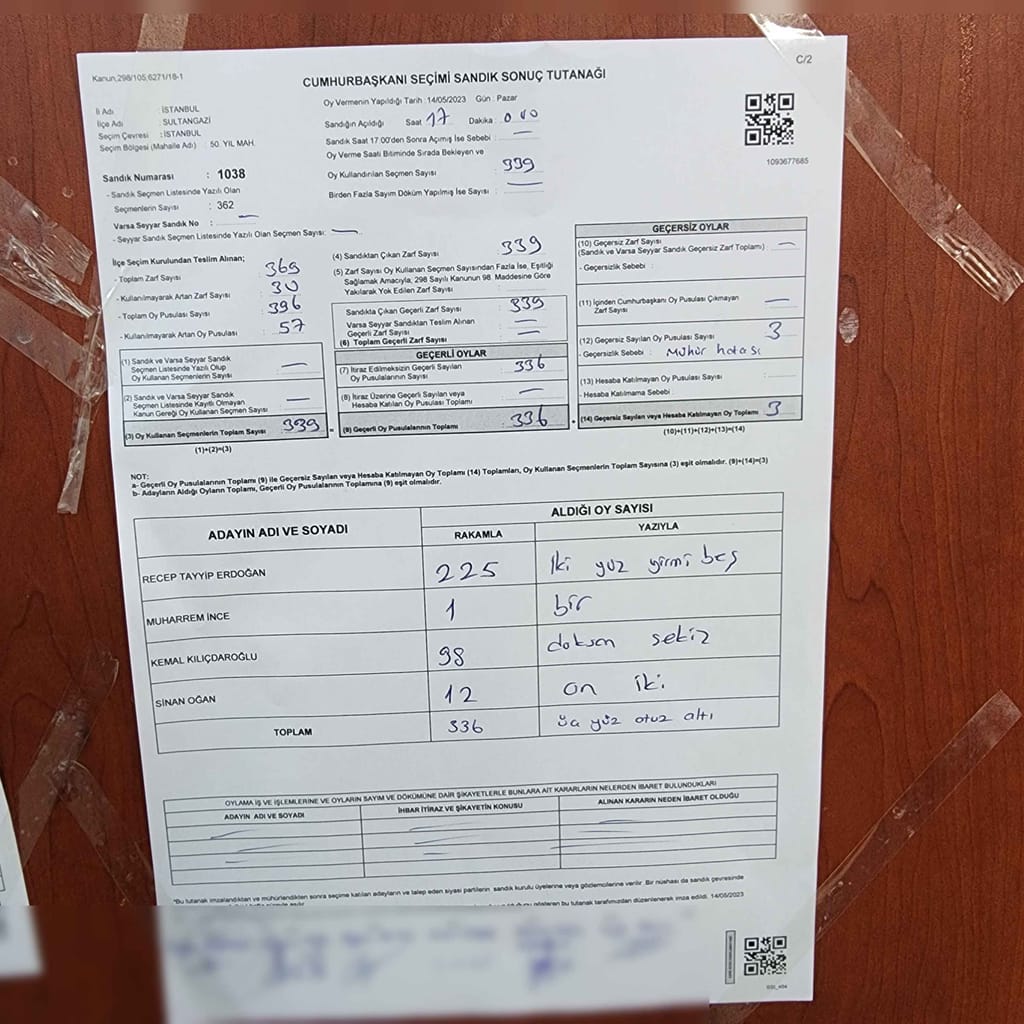 C/2
Kanun,298/105,6271/18-1
CUMHURBAŞKANI SEÇİMİ SANDIK SONUÇ TUTANAĞI
İl Adı : İSTANBUL
İlçe Adı : SULTANGAZİ
Seçim Çevresi : İSTANBUL
Seçim Bölgesi (Mahalle Adı) : 50. YIL MAH.
Oy Vermenin Yapıldığı Tarih : 14/05/2023 Gün : Pazar
Sandığın Açıldığı Saat 17 Dakika :
Sandık Saat 17.00'den Sonra Açımış İse Sebebi : —
Oy Verme Saati Bitiminde Sırada Bekleyen ve
Oy Kullandırılan Seçmen Sayısı : 339
Birden Fazla Sayım Döküm Yapılmış İse Sayısı : —
1093677685
Sandık Numarası : 1038
- Sandık Seçmen Listesinde Yazılı Olan
Seçmenlerin Sayısı : 362
Varsa Seyyar Sandık No : —
- Seyyar Sandık Seçmen Listesinde Yazılı Olan Seçmen Sayısı: —
İlçe Seçim Kurulundan Teslim Alınan;
- Toplam Zarf Sayısı : 369
- Kullanılmayarak Artan Zarf Sayısı : 30
- Toplam Oy Pusulası Sayısı : 396
- Kullanılmayarak Artan Oy Pusulası : 57
(1) Sandık ve Varsa Seyyar Sandık
Seçmen Listesinde Yazılı Olup
Oy Kullanan Seçmenlerin Sayısı —
(2) Sandık ve Varsa Seyyar Sandık
Seçmen Listesinde Kayıtlı Olmayan
Kanun Gereği Oy Kullanan Seçmen Sayısı : —
(3) Oy Kullanan Seçmenlerin Toplam Sayısı : 339
(1)+(2)=(3)
(4) Sandıktan Çıkan Zarf Sayısı : 339
(5) Zarf Sayısı Oy Kullanan Seçmen Sayısından Fazla İse, Eşitliği
Sağlamak Amacıyla, 298 Sayılı Kanunun 98. Maddesine Göre
Yakılarak Yok Edilen Zarf Sayısı :
Sandıkta Çıkan Geçerli Zarf Sayısı : 339
Varsa Seyyar Sandıktan Teslim Alınan
Geçerli Zarf Sayısı : —
(6) Toplam Geçerli Zarf Sayısı : —
GEÇERLİ OYLAR
(7) İtiraz Edilmeksizin Geçerli Sayılan
Oy Pusulalarının Sayısı : 336
(8) İtiraz Üzerine Geçerli Sayılan veya
Hesaba Katılan Oy Pusulası Toplamı : —
(9) Geçerli Oy Pusulalarının Toplamı : 336
GEÇERSİZ OYLAR
(10) Geçersiz Zarf Sayısı
(Sandık ve Varsa Seyyar Sandık Geçersiz Zarf Toplamı) : —
- Geçersizlik Sebebi :
(11) İçinden Cumhurbaşkanı Oy Pusulası Çıkmayan
Zarf Sayısı : —
(12) Geçersiz Sayılan Oy Pusulası Sayısı : 3
- Geçersizlik Sebebi : Mühür hatası
(13) Hesaba Katılmayan Oy Pusulası Sayısı :
- Hesaba Katılmama Sebebi
(14) Geçersiz Sayılan veya Hesaba Katılmayan Oy Toplamı : 3
(10)+(11)+(12)+(13)=(14)
NOT:
a- Geçerli Oy Pusulalarının Toplamı (9) ile Geçersiz Sayılan veya Hesaba Katılmayan Oy Toplamı (14) Toplamları, Oy Kullanan Seçmenlerin Toplam Sayısına (3) eşit olmalıdır. (9)+(14)=(3)
b- Adayların Aldığı Oyların Toplamı, Geçerli Oy Pusulalarının Toplamına (9) eşit olmalıdır.
ADAYIN ADI VE SOYADI
ALDIĞI OY SAYISI
RAKAMLA YAZIYLA
RECEP TAYYİP ERDOĞAN 225 İki yüz yirmi beş
MUHARREM İNCE 1 bir
KEMAL KILIÇDAROĞLU 98 doksan sekiz
SİNAN OĞAN 12 on iki
TOPLAM 336 üç yüz otuz altı
OYLAMA İŞ VE İŞLEMLERİNE VE OYLARIN SAYIM VE DÖKÜMÜNE DAİR ŞİKAYETLERLE BUNLARA AİT KARARLARIN NELERDEN İBARET BULUNDUKLARI
ADAYIN ADI VE SOYADI İHBAR İTİRAZ VE ŞİKAYETİN KONUSU ALINAN KARARIN NEDEN İBARET OLDUĞU
*Bu tutanak imzalandıktan ve mühürlendikten sonra seçime katılan adayların ve talep eden siyasi partilerin sandık kurulu üyelerine veya gözlemcilerine verilir. Bir nüshası da sandık çevresinde
gösteren bu tutanak tarafımızdan düzenlenerek imza edildi. 14/05/2023